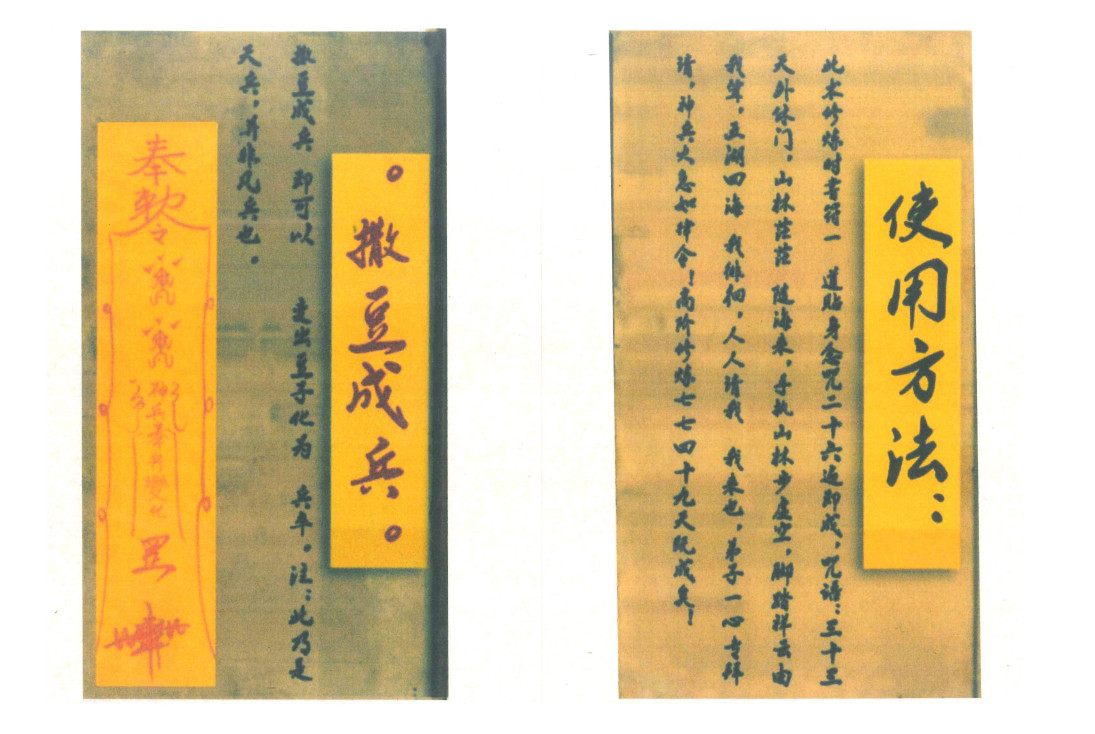 。撒豆成兵。
撒豆成兵 即可以 走出豆子化为 兵卒。注:此乃是
天兵,并非凡兵也。
奉
敕
令
罡
使用方法:
此术修炼时书符一 道贴身念咒二十六遍即成,咒语:三十三
天外休门,山林茫茫 随海来,手执山林步虚空,脚踏祥云由
我,五湖四海 我徘徊,人人请我 我来也,弟子一心专拜
请,神兵火急如律令!高阶修炼七七四十九天既成矣!